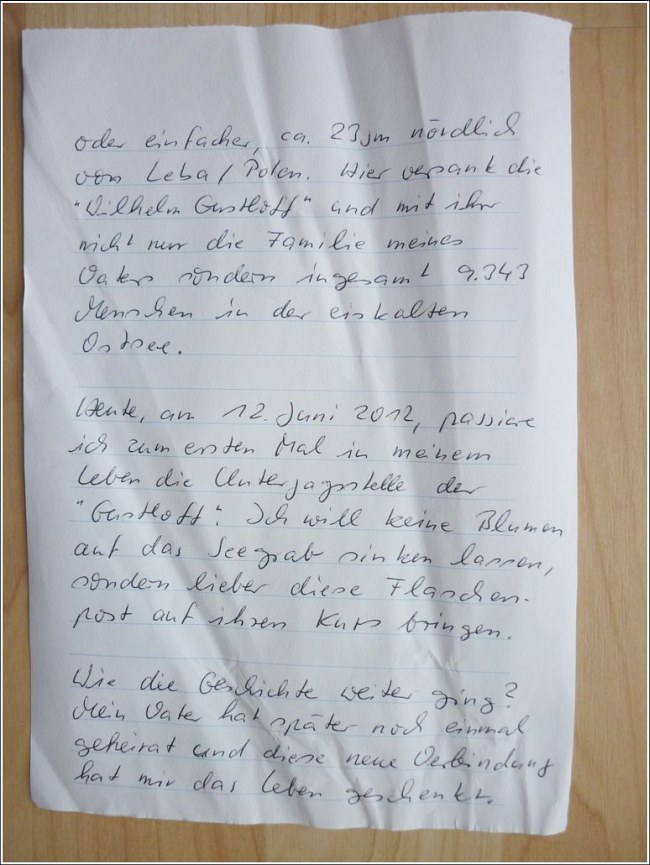 oder einfacher, ca. 23sm nördlich
von Leba/Polen. Hier versank die
"Wilhelm Gustloff" und mit ihr
nicht nur die Familie meines
Vaters sondern ingesamt 9.343
Menschen in der eiskalten
Ostsee.
Heute, am 12. Juni 2012, passiere
ich zum ersten Mal in meinem
Leben die Untergangsstelle der
"Gustloff". Ich will keine Blumen
auf das Seegrab sinken lassen,
sondern lieber diese Flaschen-
post auf ihren Kurs bringen.
Wie die Geschichte weiter ging?
Mein Vater hat später noch einmal
geheirat und diese neue Verbindung
hat mir das Leben geschenkt.